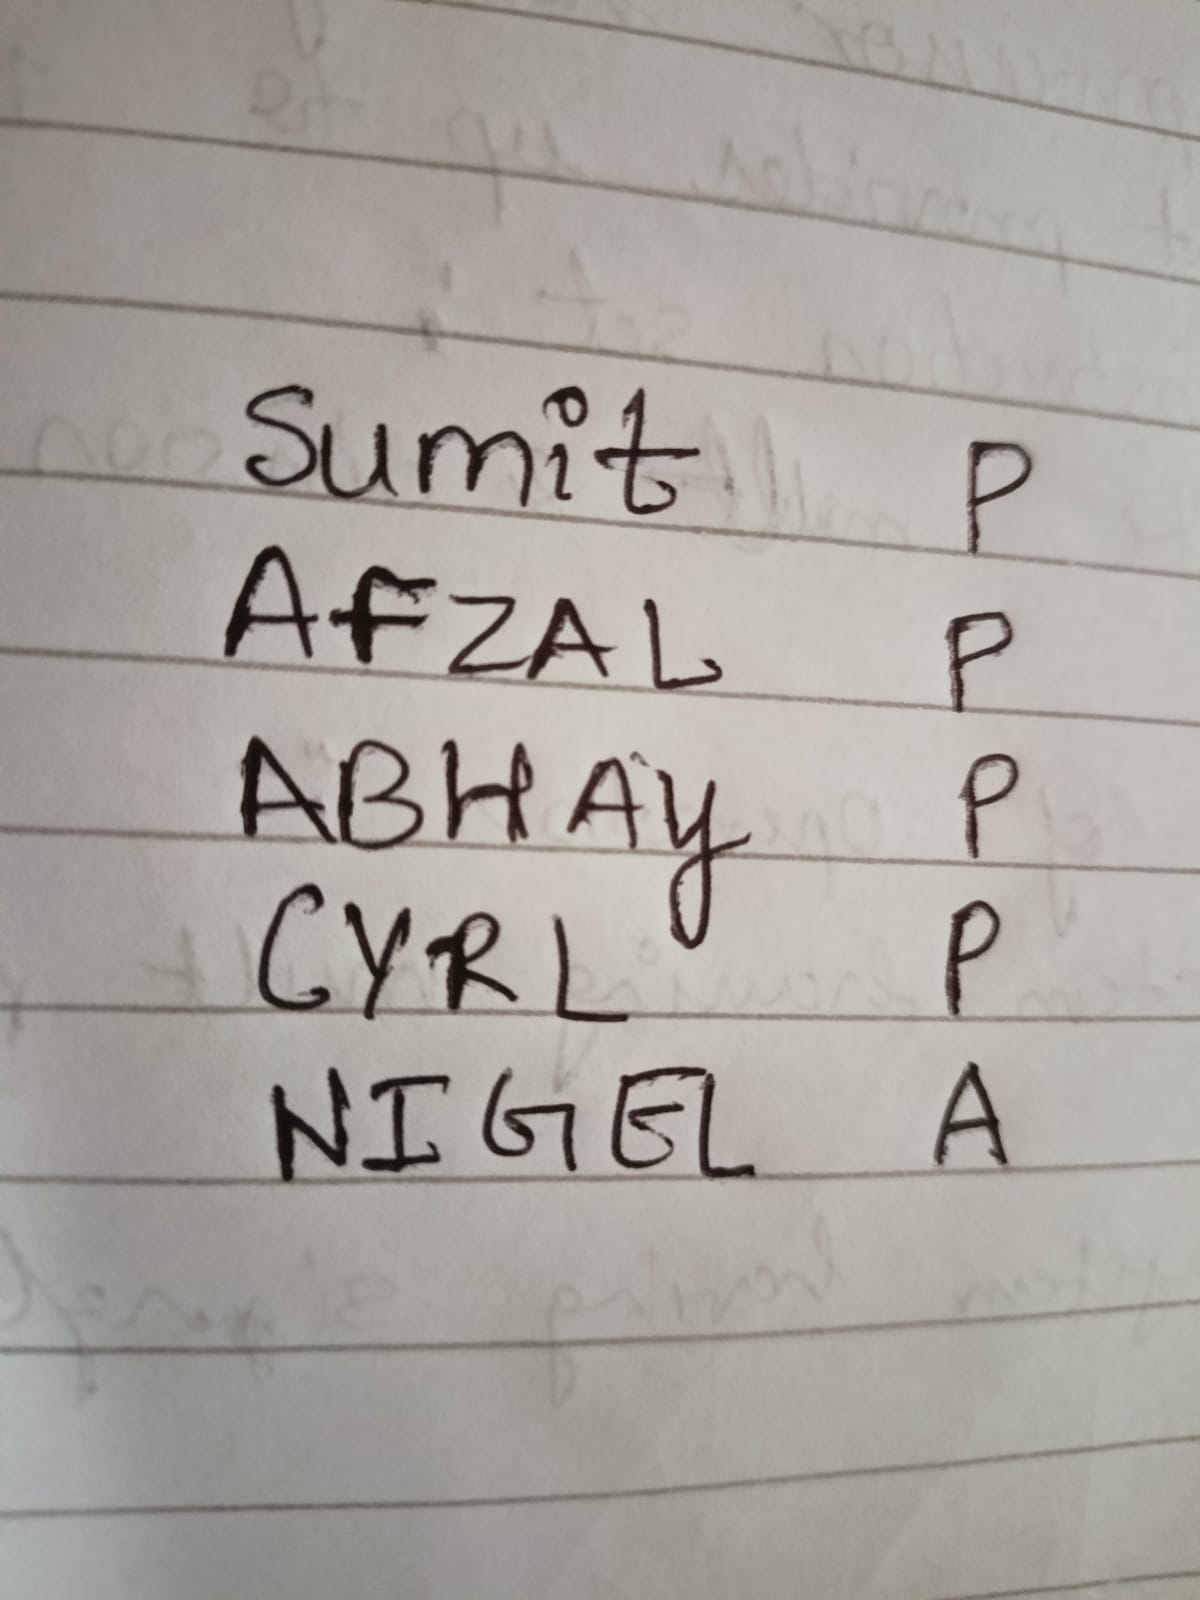 Sumit P
AFZAL P
ABHAy P
CYRL P
NIGEL A